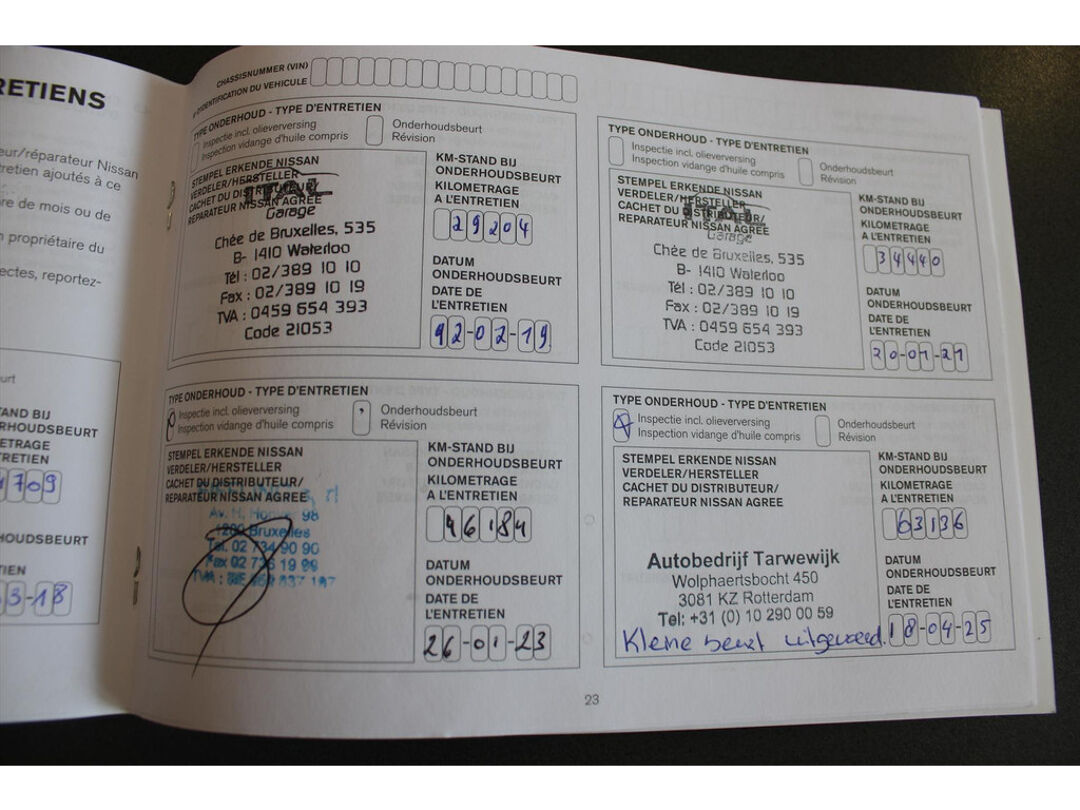 RETIENS
eur/réparateur Nissan
retien ajoutés à ce
re de mois ou de
n propriétaire du
ectes, reportez-
TAND BIJ
RHOUDSBEURT
ETRAGE
RETIEN
709
HOUDSBEURT
TIEN
3-18
CHASSISNUMMER (VIN)
D'IDENTIFICATION DU VEHICULE
TYPE ONDERHOUD - TYPE D'ENTRETIEN
Inspectie incl. olieverversing
Inspection vidange d'huile compris
Onderhoudsbeurt
Révision
STEMPEL ERKENDE NISSAN
VERDELER/HERSTELLER
CACHET DU DISTRIBUTEUR/
REPARATEUR NISSAN AGREE
Garage
Chée de Bruxelles, 535
B- 1410 Waterloo
Tél : 02/389 10 10
Fax : 02/389 10 19
TVA : 0459 654 393
Code 21053
KM-STAND BIJ
ONDERHOUDSBEURT
KILOMETRAGE
A L'ENTRETIEN
29204
DATUM
ONDERHOUDSBEURT
DATE DE
L'ENTRETIEN
-02-19
TYPE ONDERHOUD - TYPE D'ENTRETIEN
Inspectie incl. olieverversing
Inspection vidange d'huile compris
Onderhoudsbeurt
Révision
STEMPEL ERKENDE NISSAN
VERDELER/HERSTELLER
CACHET DU DISTRIBUTEUR/
REPARATEUR NISSAN AGREE
Garage
Chée de Bruxelles, 535
B- 1410 Waterloo
Tél : 02/389 10 10
Fax : 02/389 10 19
TVA : 0459 654 393
Code 21053
KM-STAND BIJ
ONDERHOUDSBEURT
KILOMETRAGE
A L'ENTRETIEN
34440
DATUM
ONDERHOUDSBEURT
DATE DE
L'ENTRETIEN
20-01-21
TYPE ONDERHOUD - TYPE D'ENTRETIEN
Inspectie incl. olieverversing
Inspection vidange d'huile compris
Onderhoudsbeurt
Révision
STEMPEL ERKENDE NISSAN
VERDELER/HERSTELLER
CACHET DU DISTRIBUTEUR/
REPARATEUR NISSAN AGREE
Av. H. 98
Bruxelles
Tel. 02 734 90 90
Fax 02
KM-STAND BIJ
ONDERHOUDSBEURT
KILOMETRAGE
A L'ENTRETIEN
46184
DATUM
ONDERHOUDSBEURT
DATE DE
L'ENTRETIEN
26-01-23
TYPE ONDERHOUD - TYPE D'ENTRETIEN
Inspectie incl. olieverversing
Inspection vidange d'huile compris
Onderhoudsbeurt
Révision
STEMPEL ERKENDE NISSAN
VERDELER/HERSTELLER
CACHET DU DISTRIBUTEUR/
REPARATEUR NISSAN AGREE
Autobedrijf Tarwewijk
Wolphaertsbocht 450
3081 KZ Rotterdam
Tel: +31 (0) 10 290 00 59
Kleine beurt uitgevoerd.
KM-STAND BIJ
ONDERHOUDSBEURT
KILOMETRAGE
A L'ENTRETIEN
63136
DATUM
ONDERHOUDSBEURT
DATE DE
L'ENTRETIEN
18-04-25
23